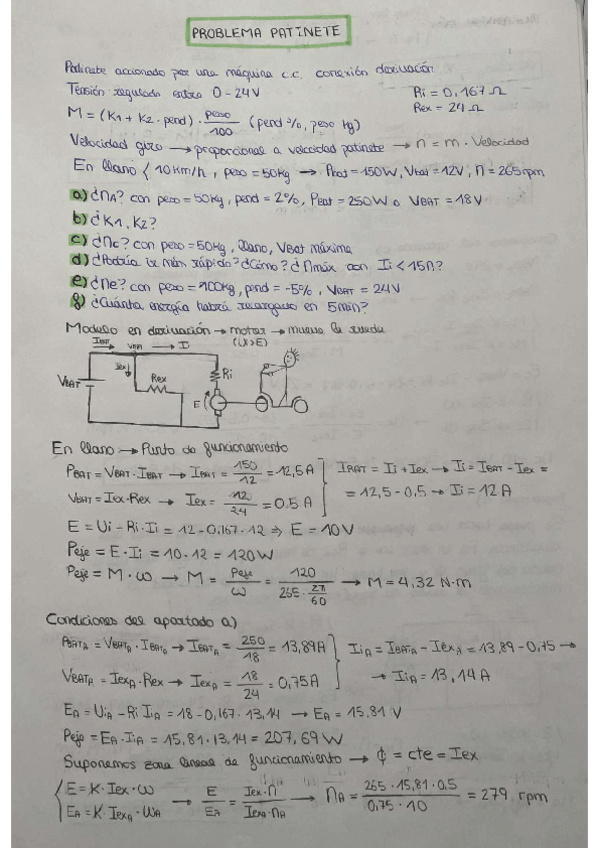 PROBLEMA PATINETE
Patinete accionado por una máquina c.c. conexión derivación
Tensión regulada entre 0-24V
Ri = 0,167 Ω
Rex = 24 Ω
M = (K1 + K2 · pend) · peso/100 (pend %, peso kg)
Velocidad giro → proporcional a velocidad patinete → n = m · Velocidad
En llano { 10 km/h, peso = 50kg → Pbat = 150W, Vbat = 12V, n = 265 rpm
a) ¿nA? con peso = 50kg, pend = 2%, Pbat = 250W o VBAT = 18V
b) ¿K1, K2?
c) ¿nc? con peso = 50kg, llano, VBat máxima
d) ¿Podría ir más rápido? ¿Cómo? ¿nmáx con Ii < 15A?
e) ¿ne? con peso = 100kg, pend = -5%, VBAT = 24V
f) ¿Cuánta energía habrá recargado en 5min?
Modelo en derivación → motor → mueve la rueda
(U>E)
IBAT VBAT → I
Iex
VBAT Rex Ri
E
En llano → Punto de funcionamiento
PBAT = VBAT · IBAT → IBAT = 150/12 = 12,5 A
VBAT = Iex · Rex → Iex = 12/24 = 0,5 A
IBAT = Ii + Iex → Ii = IBAT - Iex =
= 12,5 - 0,5 → Ii = 12 A
E = Ui - Ri · Ii = 12 - 0,167 · 12 ⇒ E = 10V
Peje = E · Ii = 10 · 12 = 120W
Peje = M · ω → M = Peje/ω = 120/(265 · 2π/60) → M = 4,32 N·m
Condiciones del apartado a)
PBATA = VBATA · IBATA → IBATA = 250/18 = 13,89A
VBATA = IexA · Rex → IexA = 18/24 = 0,75A
IiA = IBATA - IexA = 13,89 - 0,75 →
→ IiA = 13,14 A
EA = UiA - Ri IiA = 18 - 0,167 · 13,14 → EA = 15,81 V
Peje = EA · IiA = 15,81 · 13,14 = 207,69 W
Suponemos zona lineal de funcionamiento → ϕ = cte = Iex
{ E = K · Iex · ω
EA = K · IexA · ωA → E/EA = Iex · n/IexA · nA → nA = 265 · 15,81 · 0,5/0,75 · 10 = 279 rpm